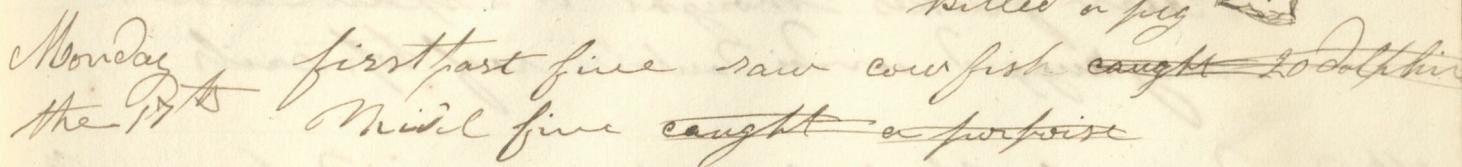 killed a pig
Monday first part fine saw cow fish caught 20 dolphin
the 17th Midl fine caught a porpoise